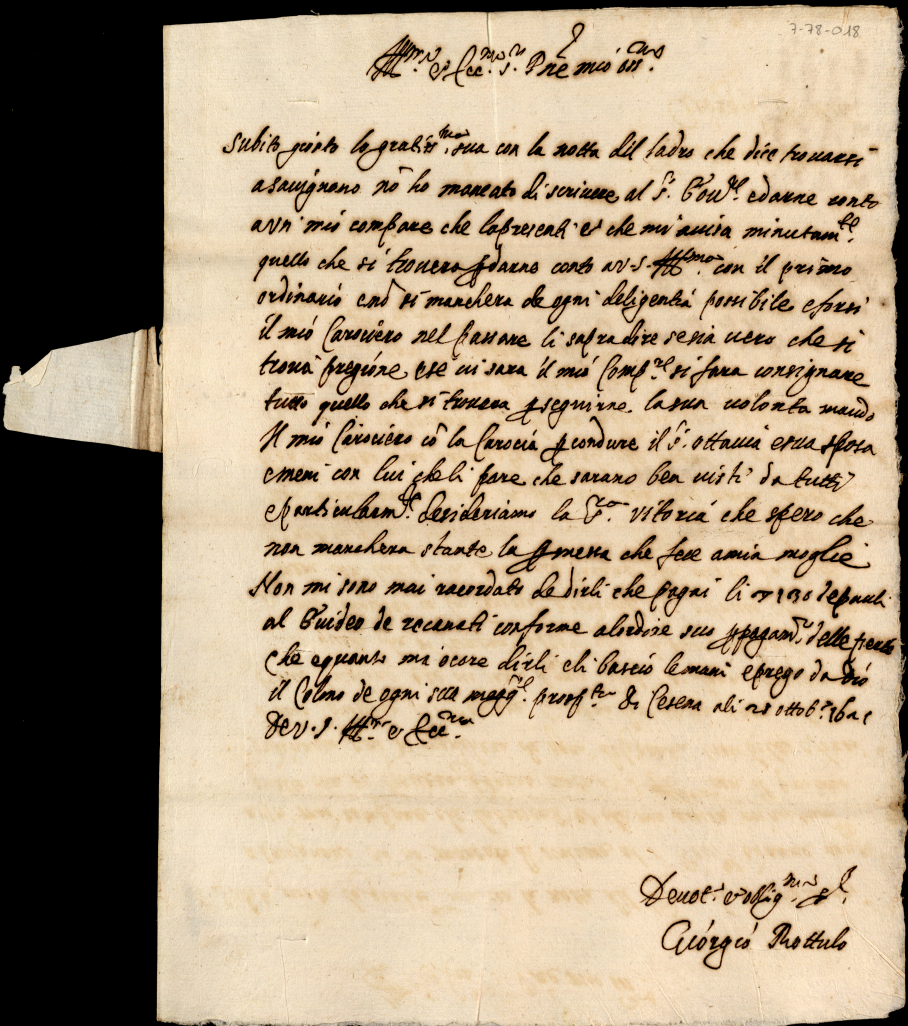 7-78-018
Ill.mo et Ecc.mo S.r P.ne mio oss.mo
subito gionto la gratis.ma sua con la notta dil ladro che dice trovarsi
a Savignano nō ho mancato di scrivere al S.r Gov.re e darne conto
a un mio compare che che mi avisa minutam.te
quello che si trovera p darne conto a V.S. Ill.ma con il primo
ordinario e nō si manchera de ogni deligentia possibile e forsi
il mio Carociero nel passare li sapra dire se sia vero che si
trova pregione e se vi sara il mio Comp.re si fara consignare
tutto quello che si trovera p seguirne la sua volonta mando
Il mio Carociero cō la Carocia p condure il S.r ottavia e sua sposa
e meni con lui che li pare che sarano ben visti da tutti
e particularm.te desideriamo la S.ra Vitoria che spero che
non manchera stante la pmessa che fece a mia moglie
Non mi sono mai racordato de dirli che pagai li 130 de pauli
al Guideo de recanati conforme al ordine suo p pagam.to delle
che e quanto mi ocore dirli e li bascio le mani e prego da Dio
il Colmo de ogni sua prosp.ta Di Cesena ali 28 ottob.e
De V.S. Ill.ma e Ecc.ma
Devot.o et oblig.mo S.r
Giorgio Rottulo